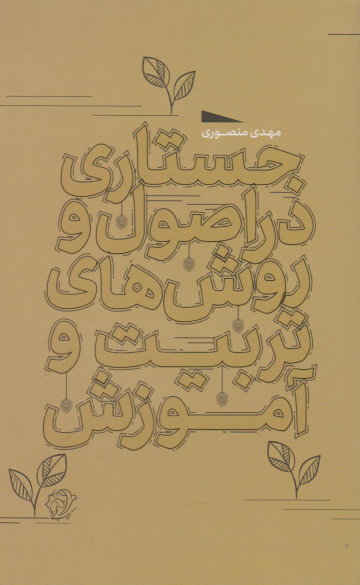 مهدی منصوری
جستاری
در اصول و
روش‌های
تربیت و
آموزش